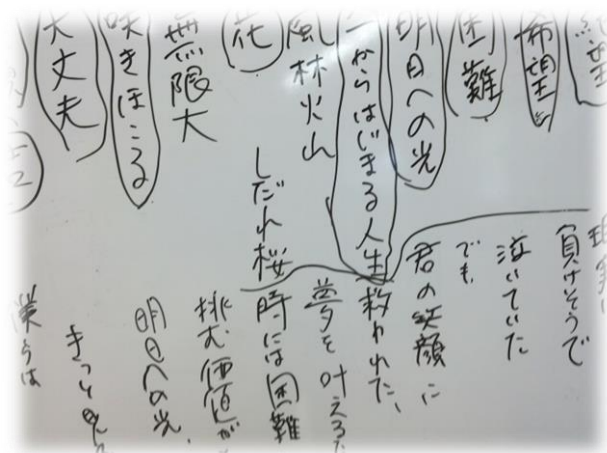 絶望
希望
困難
明日への光
からはじまる人生
風林火山
花
無限大
咲きほこる
大丈夫
負けそうで
泣いていた
でも
君の笑顔に
救われた、
夢を叶える
しだれ桜
時には困難
挑む価値が
明日への光、
きっと
僕らは